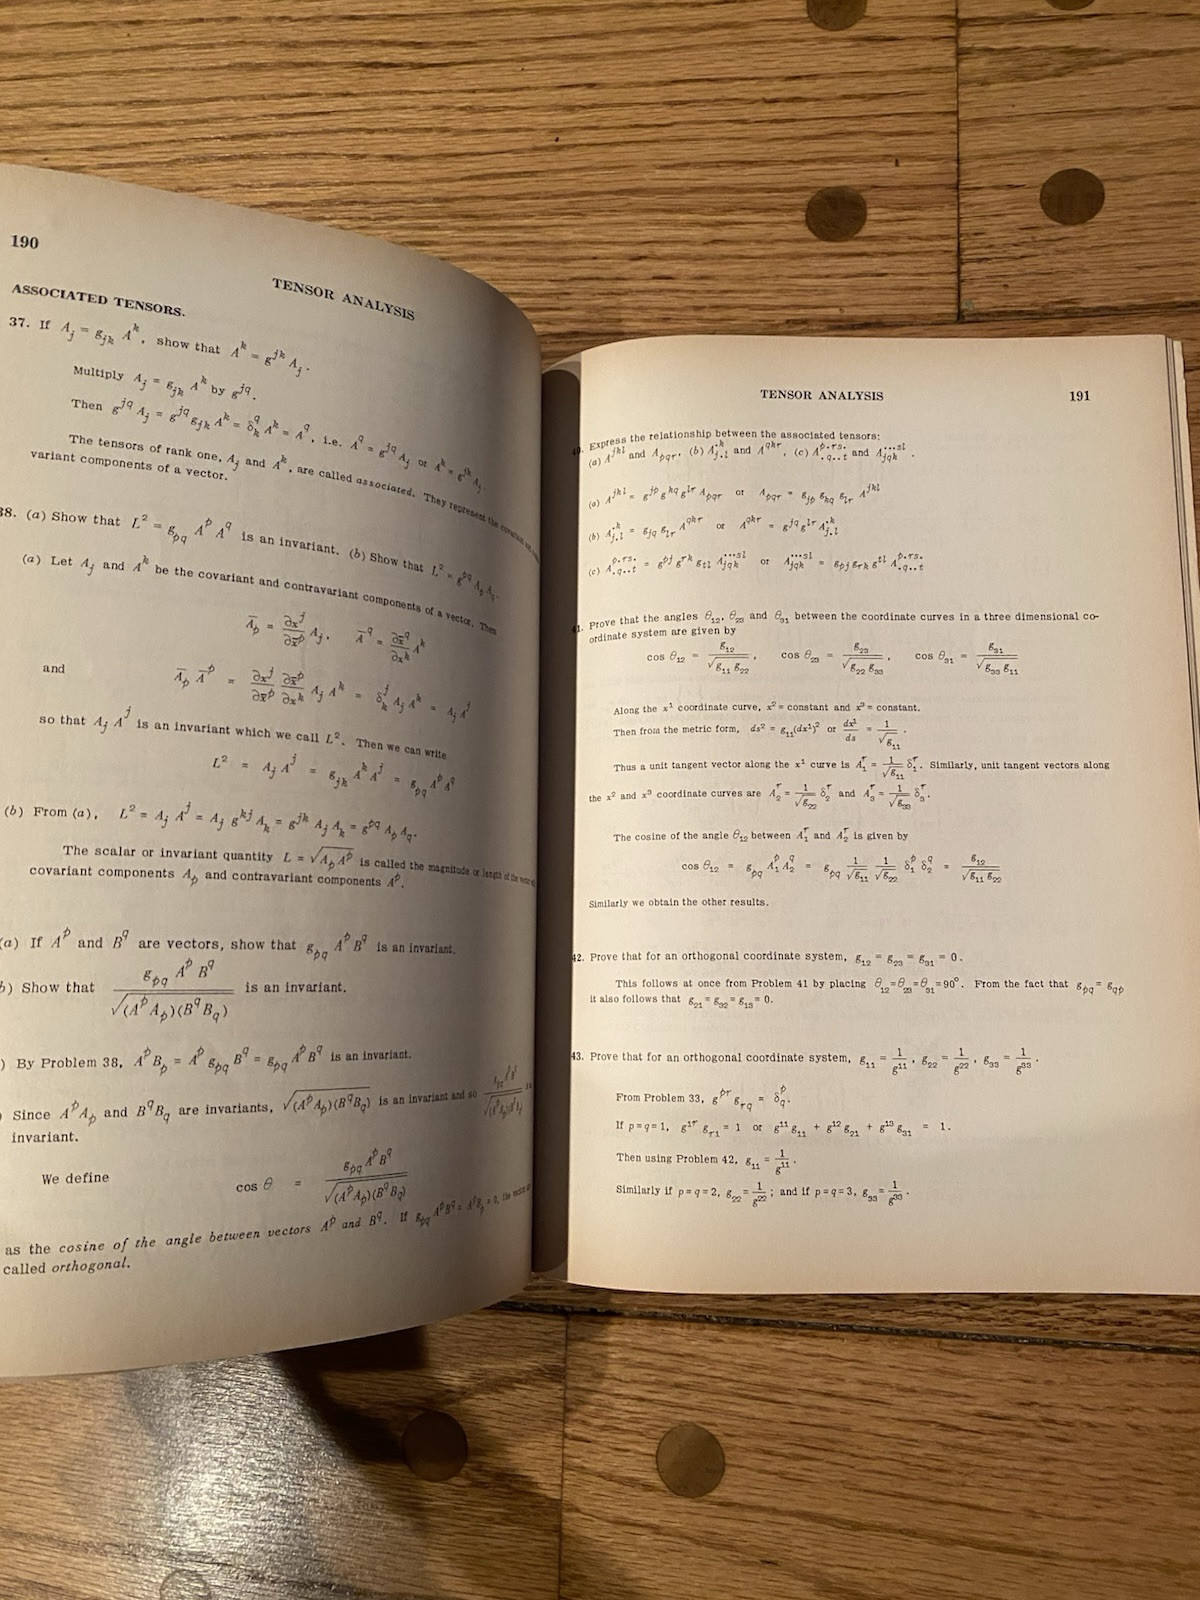 190
TENSOR ANALYSIS
ASSOCIATED TENSORS.
37. If A_j = g_{jk} A^k, show that A^k = g^{jk} A_j.
Multiply A_j = g_{jk} A^k by g^{jq}.
Then g^{jq} A_j = g^{jq} g_{jk} A^k = δ^q_k A^k = A^q, i.e. A^q = g^{jq} A_j or A^k = g^{jk} A_j.
The tensors of rank one, A_j and A^k, are called associated. They represent the covariant and
variant components of a vector.
38. (a) Show that L² = g_{pq} A^p A^q is an invariant. (b) Show that L² = g^{pq} A_p A_q.
(a) Let A_j and A^k be the covariant and contravariant components of a vector. Then
Ā_p = ∂x^j/∂x̄^p A_j, Ā^q = ∂x̄^q/∂x^k A^k
and
Ā_p Ā^p = ∂x^j/∂x̄^p ∂x̄^p/∂x^k A_j A^k = δ^j_k A_j A^k = A_j A^j
so that A_j A^j is an invariant which we call L². Then we can write
L² = A_j A^j = g_{jk} A^k A^j = g_{pq} A^p A^q
(b) From (a), L² = A_j A^j = A_j g^{kj} A_k = g^{jk} A_j A_k = g^{pq} A_p A_q.
The scalar or invariant quantity L = √(A_p A^p) is called the magnitude or length of the vector
covariant components A_p and contravariant components A^p.
(a) If A^p and B^q are vectors, show that g_{pq} A^p B^q is an invariant.
b) Show that g_{pq} A^p B^q / √((A^p A_p)(B^q B_q)) is an invariant.
) By Problem 38, A^p B_p = A^p g_{pq} B^q = g_{pq} A^p B^q is an invariant.
) Since A^p A_p and B^q B_q are invariants, √((A^p A_p)(B^q B_q)) is an invariant and so g_{pq} A^p B^q / √((A^p A_p)(B^q B_q)) is
invariant.
We define cos θ = g_{pq} A^p B^q / √((A^p A_p)(B^q B_q))
as the cosine of the angle between vectors A^p and B^q. If g_{pq} A^p B^q = A^p B_p = 0, the vectors
called orthogonal.
TENSOR ANALYSIS 191
Express the relationship between the associated tensors:
(a) A^{jkl} and A_{pqr}, (b) A_{j.l}^{.k} and A^{qkr}, (c) A^{p.rs.}_{.q..t} and A^{...sl}_{jqk}.
(a) A^{jkl} = g^{jp} g^{kq} g^{lr} A_{pqr} or A_{pqr} = g_{jp} g_{kq} g_{lr} A^{jkl}
(b) A_{j.l}^{.k} = g_{jq} g_{lr} A^{qkr} or A^{qkr} = g^{jq} g^{lr} A_{j.l}^{.k}
(c) A^{p.rs.}_{.q..t} = g^{pj} g^{rk} g_{tl} A^{...sl}_{jqk} or A^{...sl}_{jqk} = g_{pj} g_{rk} g^{tl} A^{p.rs.}_{.q..t}
41. Prove that the angles θ_{12}, θ_{23} and θ_{31} between the coordinate curves in a three dimensional co-
ordinate system are given by
cos θ_{12} = g_{12}/√(g_{11} g_{22}), cos θ_{23} = g_{23}/√(g_{22} g_{33}), cos θ_{31} = g_{31}/√(g_{33} g_{11})
Along the x¹ coordinate curve, x² = constant and x³ = constant.
Then from the metric form, ds² = g_{11}(dx¹)² or dx¹/ds = 1/√g_{11}.
Thus a unit tangent vector along the x¹ curve is A^r_1 = 1/√g_{11} δ^r_1. Similarly, unit tangent vectors along
the x² and x³ coordinate curves are A^r_2 = 1/√g_{22} δ^r_2 and A^r_3 = 1/√g_{33} δ^r_3.
The cosine of the angle θ_{12} between A^r_1 and A^r_2 is given by
cos θ_{12} = g_{pq} A^p_1 A^q_2 = g_{pq} 1/√g_{11} 1/√g_{22} δ^p_1 δ^q_2 = g_{12}/√(g_{11} g_{22})
Similarly we obtain the other results.
42. Prove that for an orthogonal coordinate system, g_{12} = g_{23} = g_{31} = 0.
This follows at once from Problem 41 by placing θ_{12} = θ_{23} = θ_{31} = 90°. From the fact that g_{pq} = g_{qp}
it also follows that g_{21} = g_{32} = g_{13} = 0.
43. Prove that for an orthogonal coordinate system, g_{11} = 1/g^{11}, g_{22} = 1/g^{22}, g_{33} = 1/g^{33}.
From Problem 33, g^{pr} g_{rq} = δ^p_q.
If p = q = 1, g^{1r} g_{r1} = 1 or g^{11} g_{11} + g^{12} g_{21} + g^{13} g_{31} = 1.
Then using Problem 42, g_{11} = 1/g^{11}.
Similarly if p = q = 2, g_{22} = 1/g^{22}; and if p = q = 3, g_{33} = 1/g^{33}.